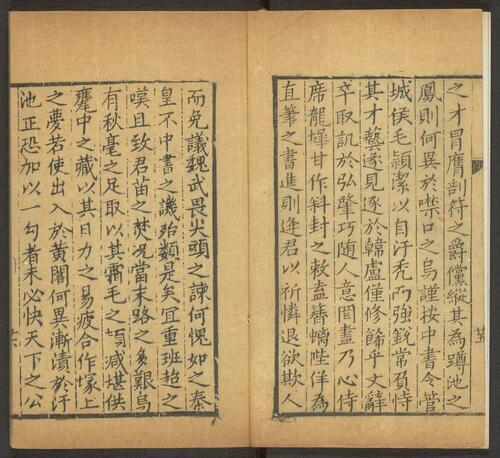 之才冒膺剖符之爵儻縱其為蹲池之
鳳則何異於噤口之烏謹按中書令管
城侯毛穎潔以自汙禿而強銳常負恃
其才藝遂見逐於韓盧僅修飾乎文辭
卒取訊於弘肇巧隨人意罔盡乃心侍
席龍墀甘作斜封之敕盍簪螭陛佯為
直筆之書進則逢君以祈憐退欲欺人
而免議魏武畏尖頭之諫何愧如之秦
皇不中書之譏殆類是矣宜重班超之
嘆且致君苗之焚况當末路之多艱烏
有秋毫之足取以其霜毛之頃减堪供
麾中之藏以其日力之易疲合作塚上
之夢若使出入於黄閣何異漸漬於汙
池正恐加以一勾者未必快天下之公